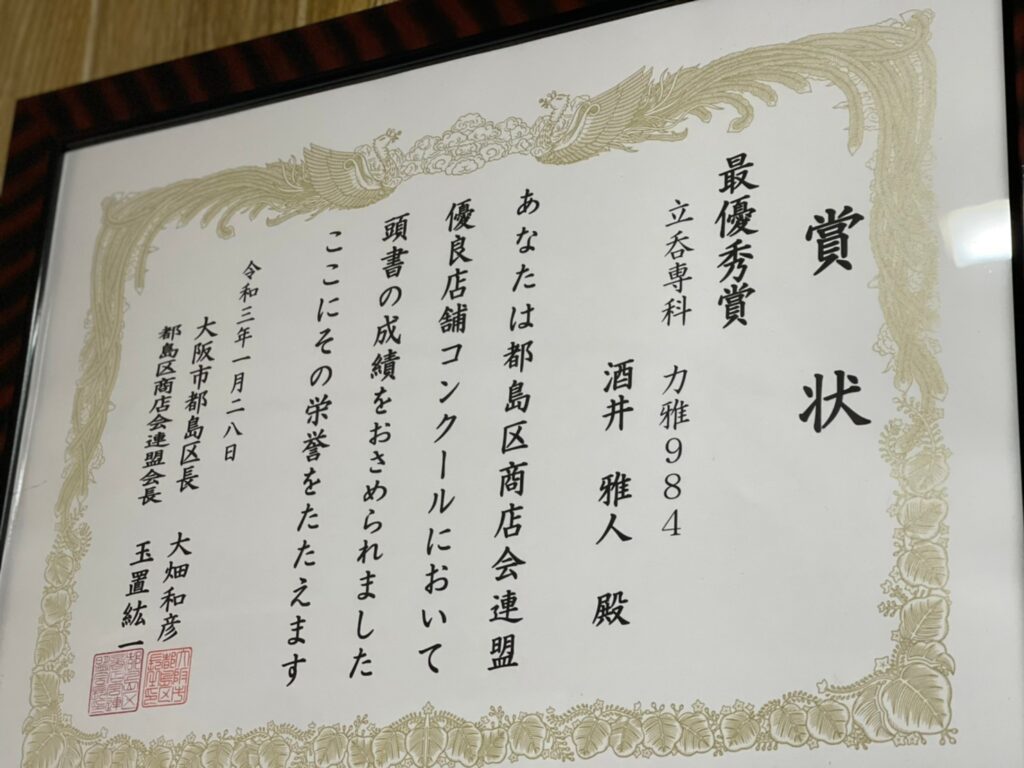 賞状
最優秀賞
立呑専科 力雅984
酒井 雅人 殿
あなたは都島区商店会連盟
優良店舗コンクールにおいて
頭書の成績をおさめられました
ここにその栄誉をたたえます
令和三年一月二八日
大阪市都島区長 大畑和彦
都島区商店会連盟会長 玉置紘一